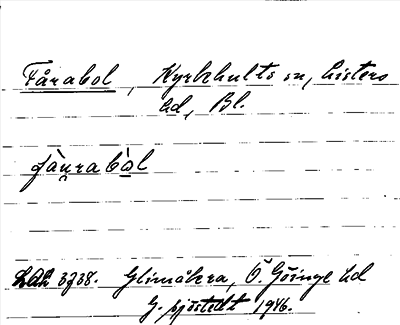 Fårabol, Kyrkhults sn, Listers
hd, Bl.
fàu̯rabò̲l
LAL 3738. Glimåkra, Ö. Göinge hd
G. Sjöstedt 1946.